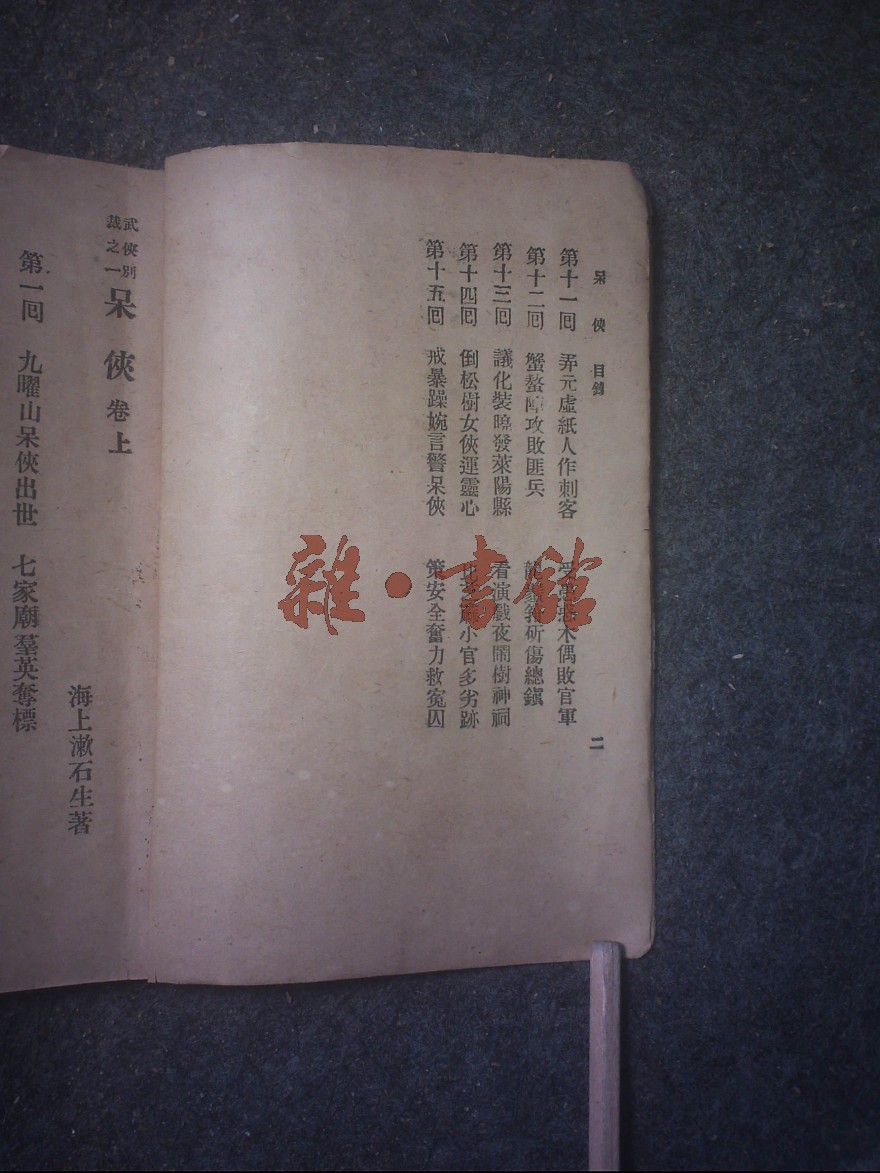 呆俠 目錄 二
第十一回 弄元虛紙人作刺客 木偶敗官軍
第十二回 蟹螯陣攻敗匪兵 斫傷總鎮
第十三回 議化裝曉發萊陽縣 看演戲夜鬧樹神祠
第十四回 倒松樹女俠運靈心 小官多劣跡
第十五回 戒暴躁婉言警呆俠 策安全奮力救冤囚
武俠別裁之一 呆俠 卷上
海上漱石生著
第一回 九曜山呆俠出世 七家廟羣英奪標
雜·書館